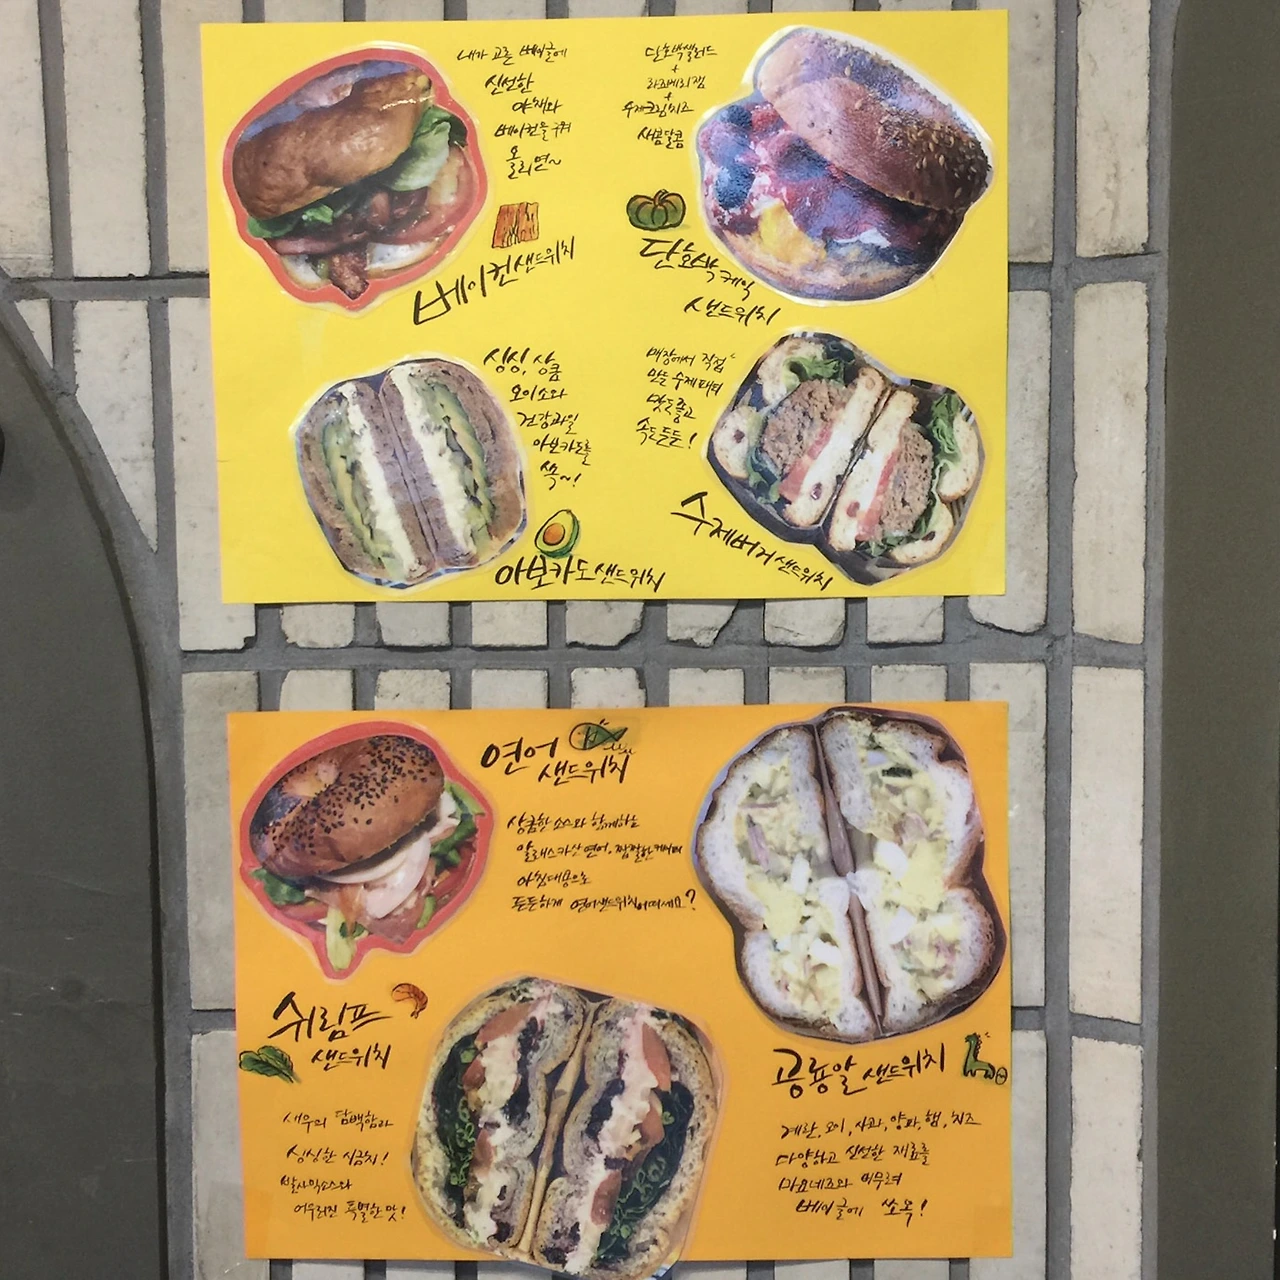 내가 고른 베이글에
신선한
야채와
베이컨을 구워
올리면~
베이컨 샌드위치
단호박샐러드
+
라즈베리잼
+
수제크림치즈
새콤달콤
단호박 케익
샌드위치
싱싱, 상큼
오이소와
건강과일
아보카도를
쏙~!
아보카도 샌드위치
매장에서 직접
만든 수제패티
맛도 좋고
속도 든든!
수제버거 샌드위치
연어
샌드위치
상큼한 소스와 함께하는
알래스카산 연어, 짭짤한 케이퍼
아침대용으로
든든하게 연어샌드위치 어떠세요?
쉬림프
샌드위치
새우의 담백함과
싱싱한 시금치!
발사믹소스와
어우러진 특별한 맛!
공룡알 샌드위치
계란, 오이, 사과, 양파, 햄, 치즈
다양하고 신선한 재료를
마요네즈와 버무려
베이글에 쏘옥!